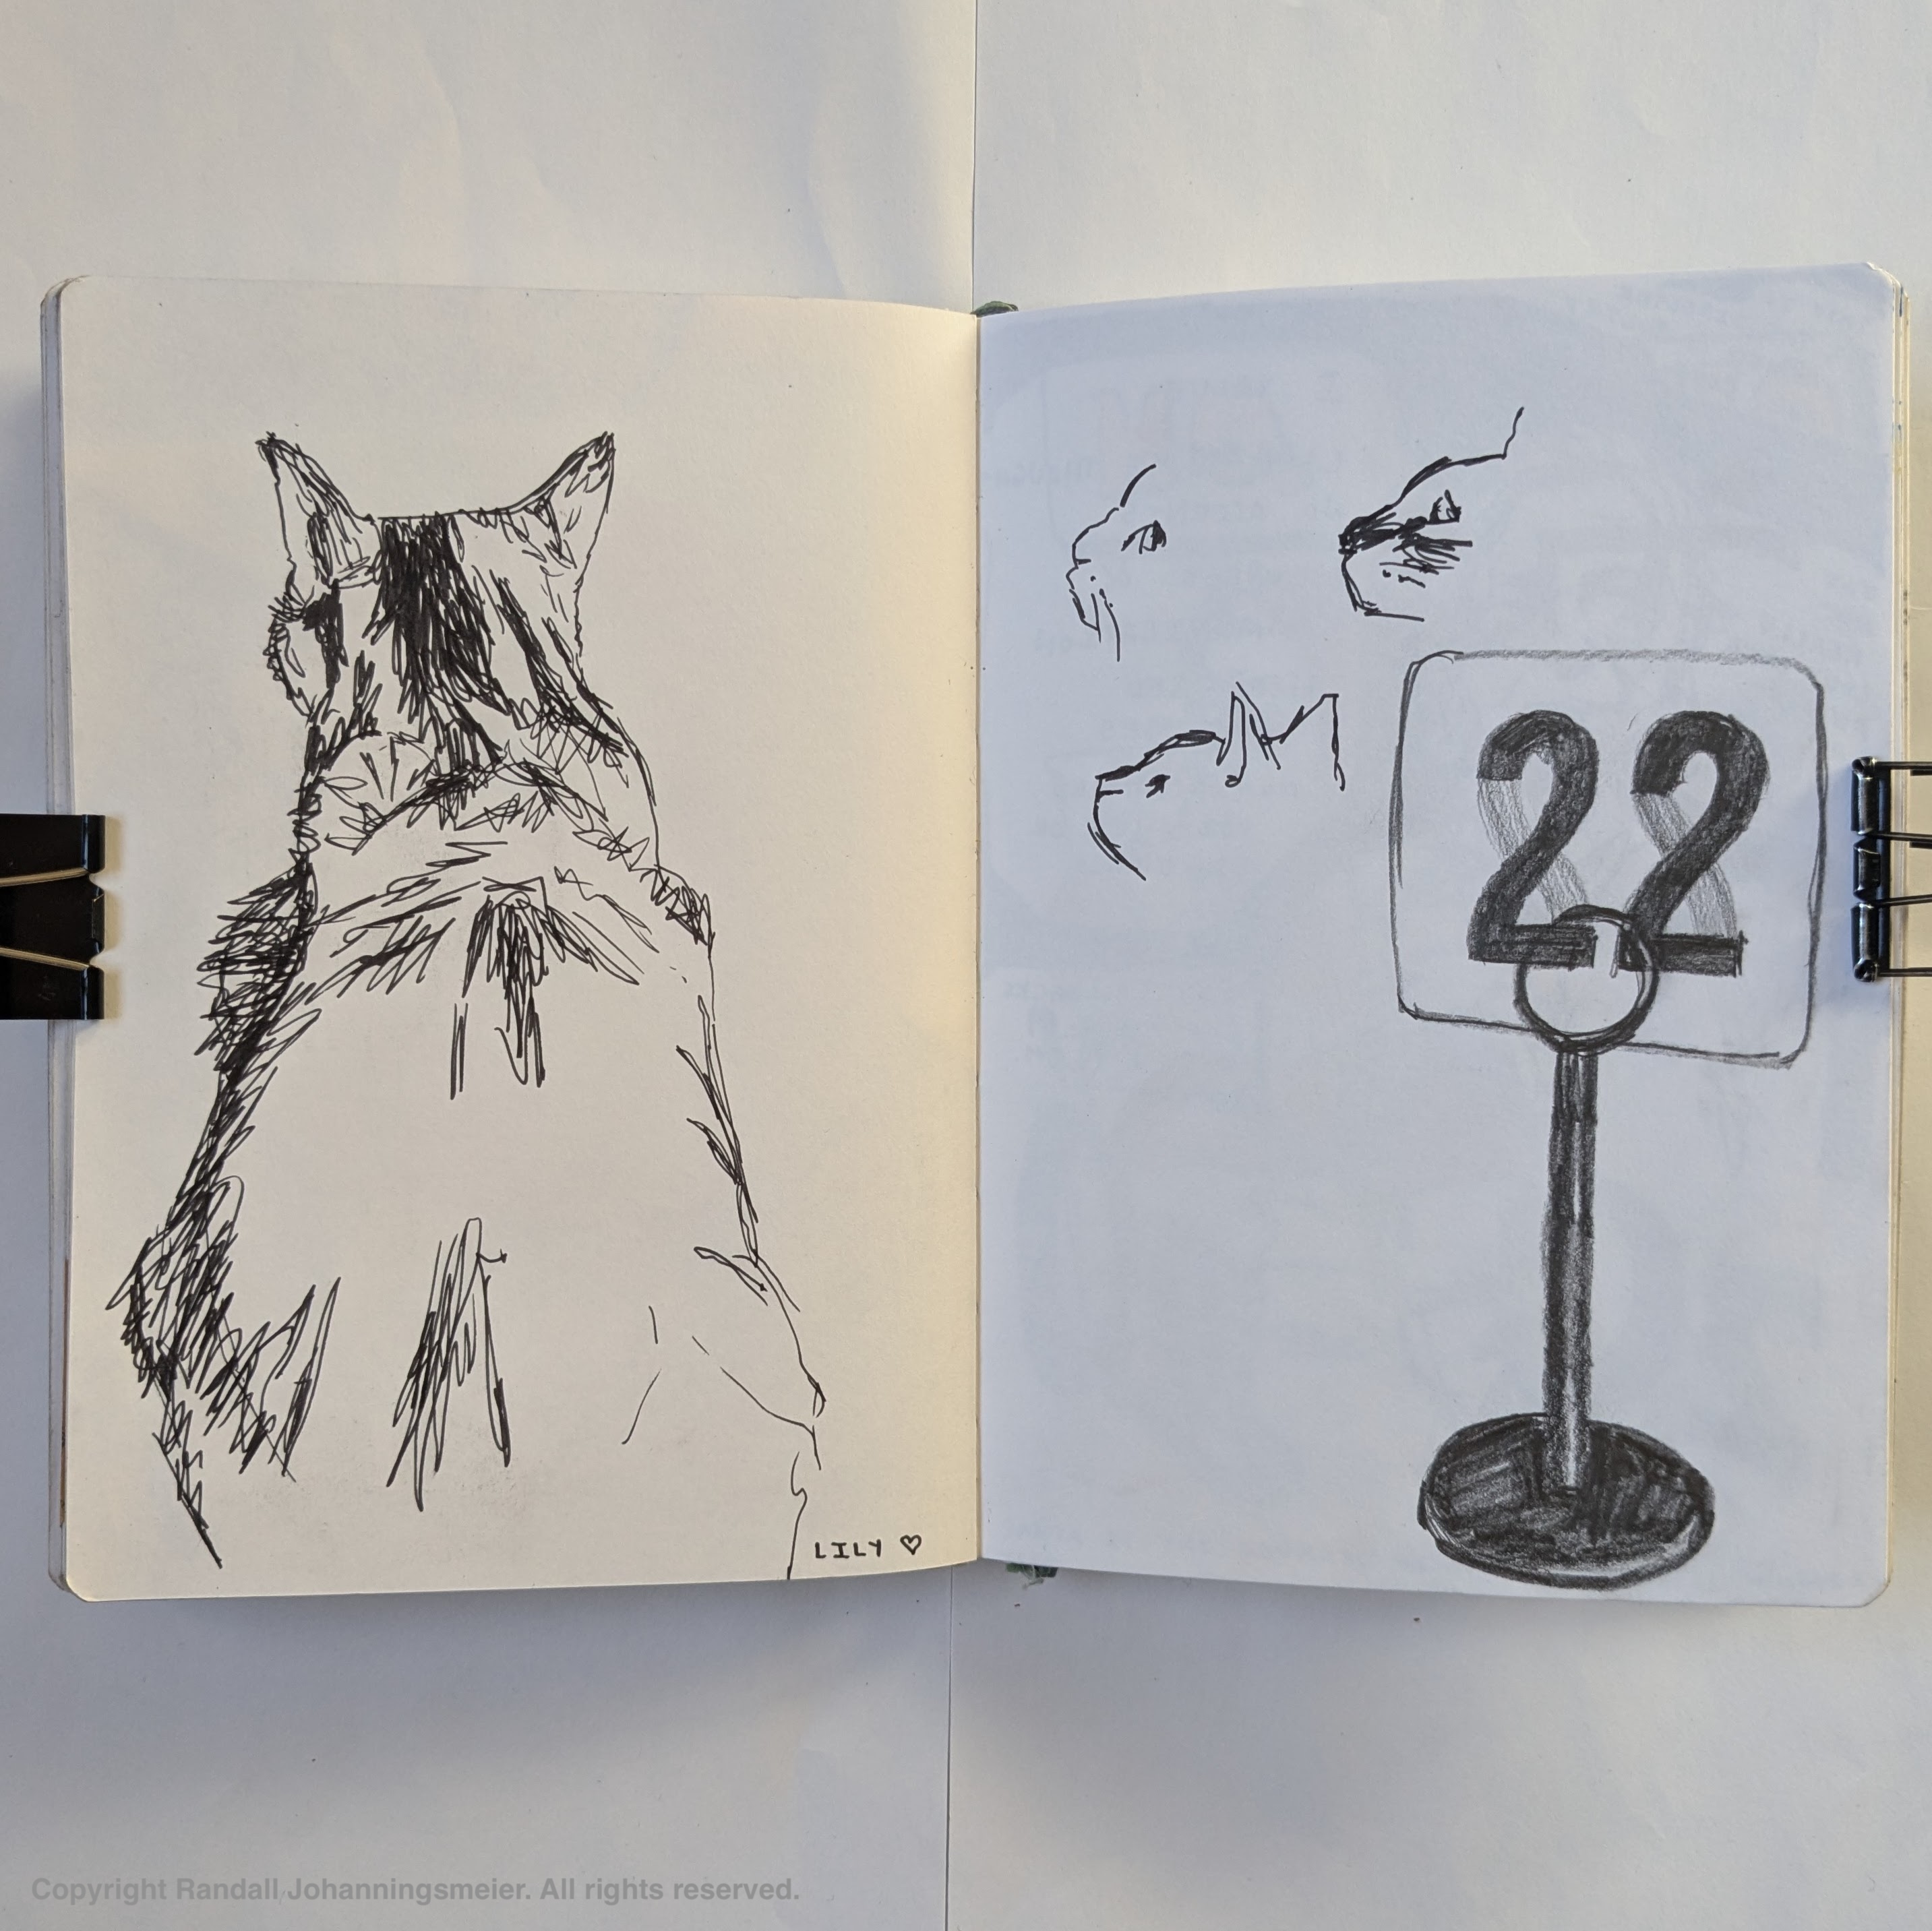 LILY ♡
22
Copyright Randall Johanningsmeier. All rights reserved.